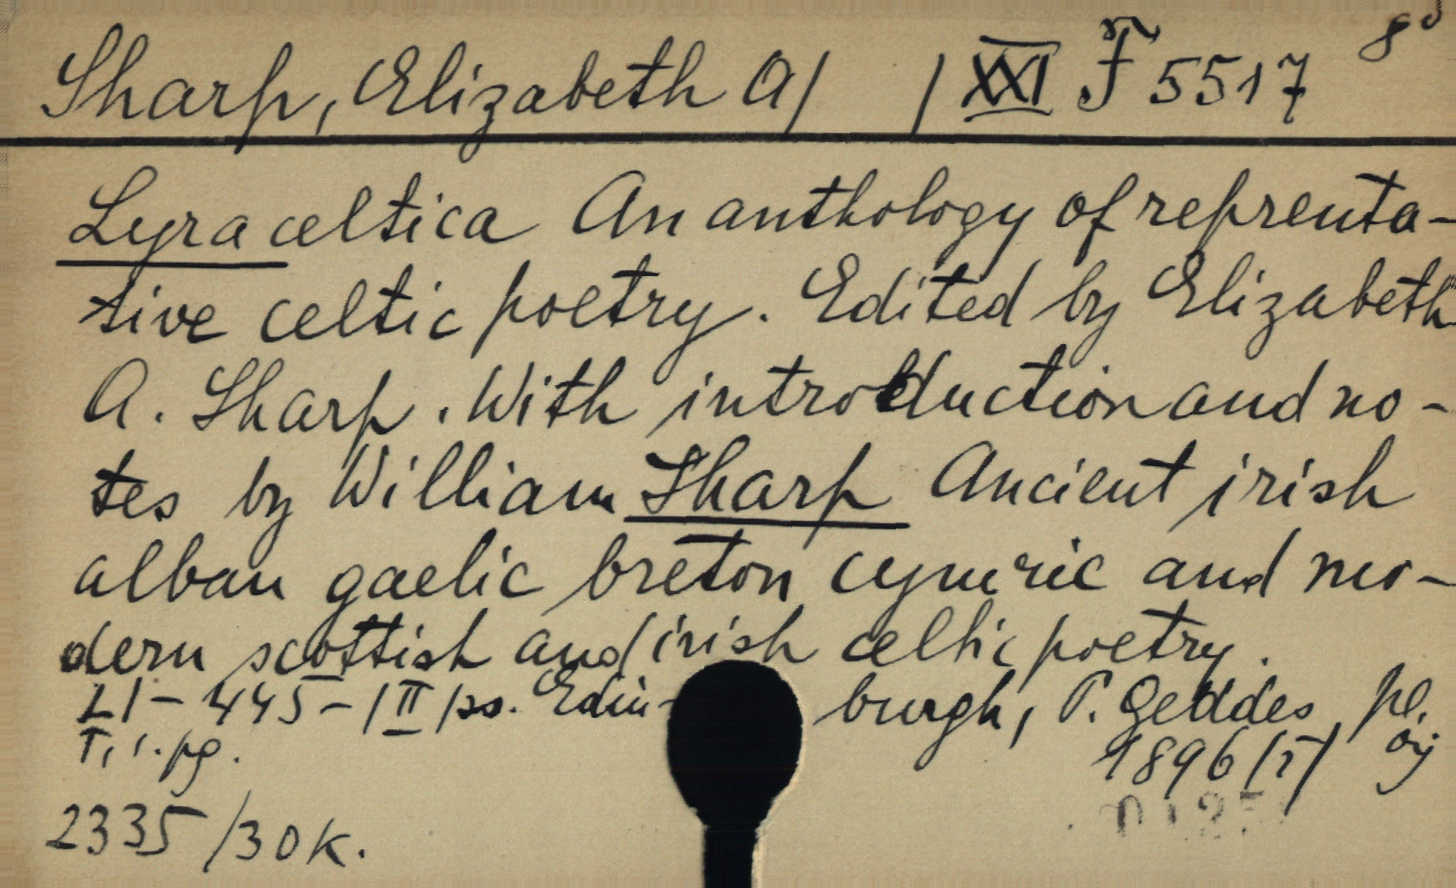 Sharp, Elizabeth A/ /XXI F 5517 8°
Lyra celtica An anthology of reprenta-
tive celtic poetry. Edited by Elizabeth
A. Sharp. With introduction and no-
tes by William Sharp Ancient irish
alban gaelic breton cymric and mo-
dern scottish and irish celtic poetry.
LI - 445 - /II/ss. Edin- burgh, P. Geddes, pł.
T, i. pg. 1896 /r/
2335/30K.